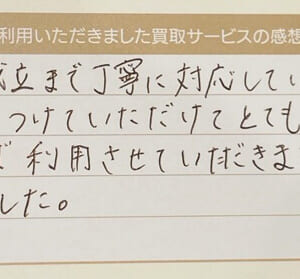 利用いただきました買取サービスの感想
成立まで丁寧に対応してい
つけていただけてとても
利用させていただきま
した。